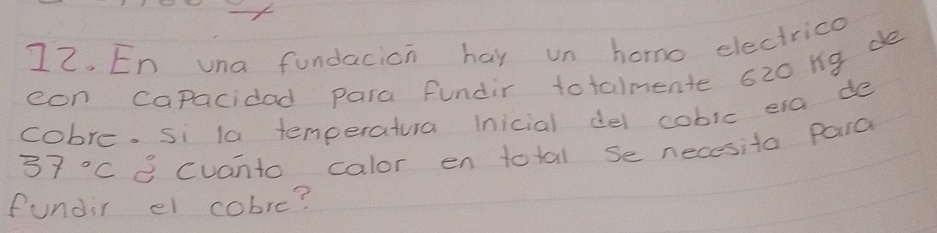 12. En una fundación hay un horno electrico
con capacidad para fundir totalmente 620 Kg de
cobre. Si la temperatura inicial del cobre era de
37 °C ¿ cuánto calor en total se necesita para
fundir el cobre?